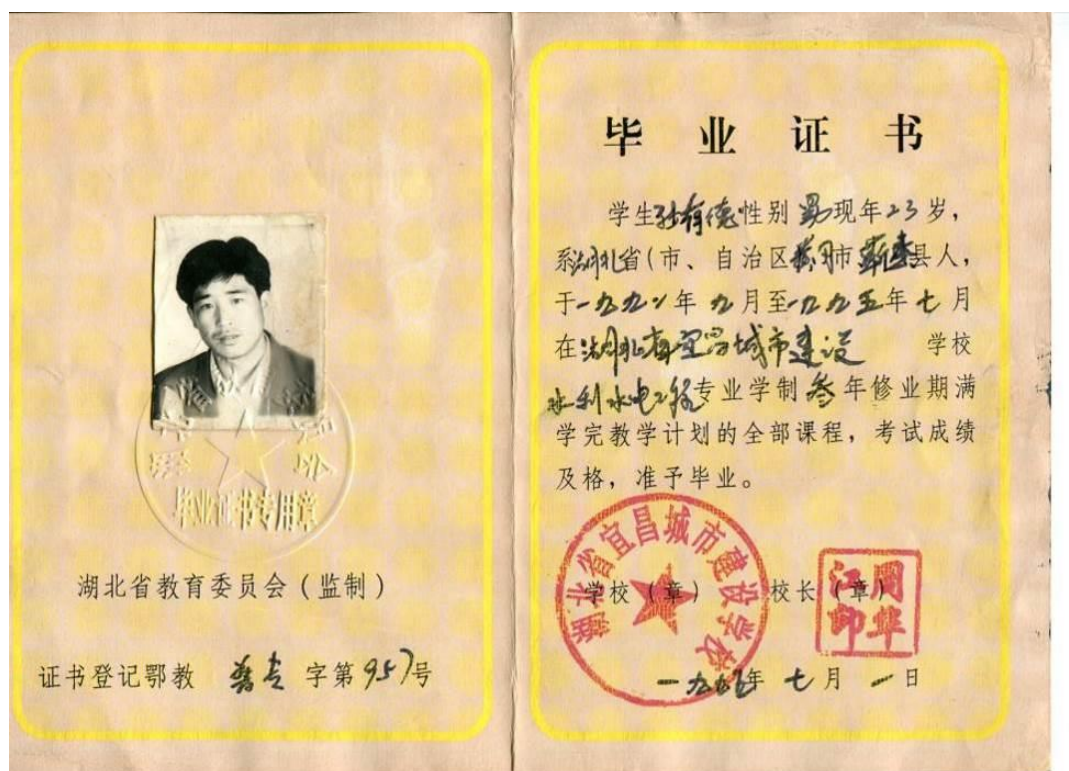 毕业证书专用章
湖北省教育委员会（监制）
证书登记鄂教 字第957号
毕 业 证 书
学生孙有德性别 男现年23岁，
系湖北省（市、自治区黄冈市蕲春县人，
于一九九二年 九月至一九九五年 七月
在湖北省宜昌城市建设 学校
水利水电工程专业学制 叁年修业期满
学完教学计划的全部课程，考试成绩
及格，准予毕业。
湖北省宜昌城市建设学校
学校（章） 校长（章）
一九九五年 七月 一日